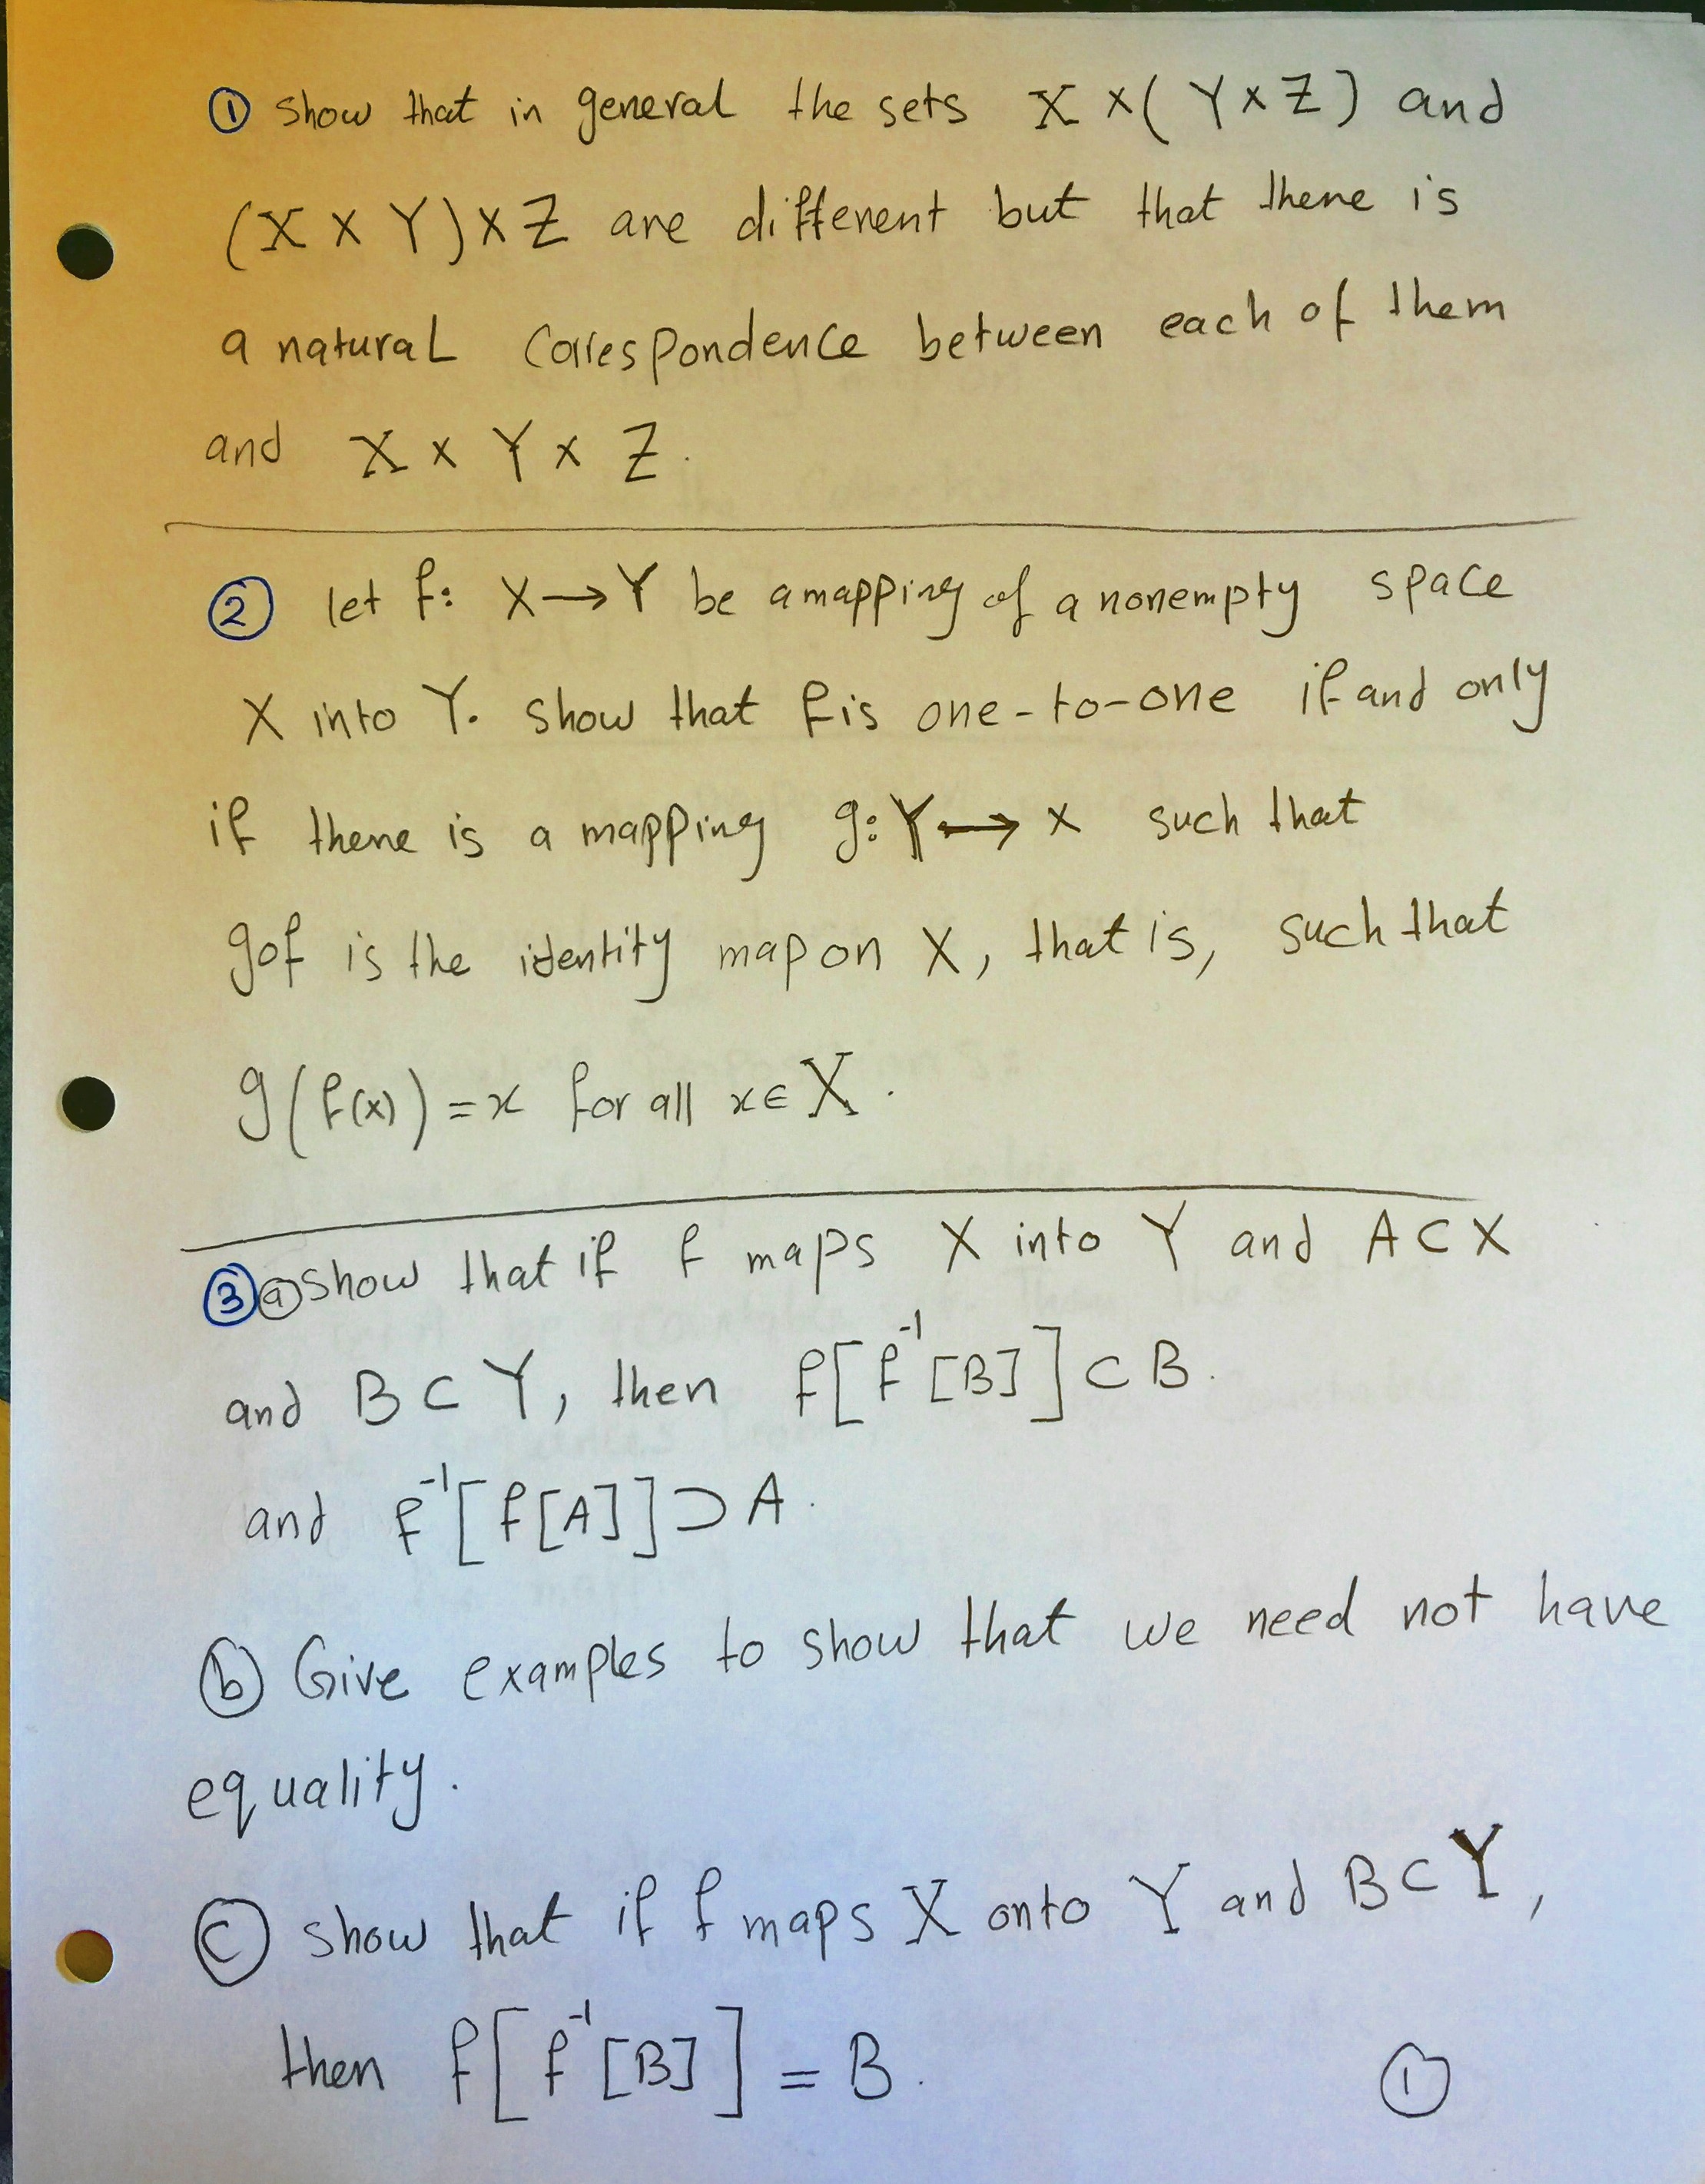 ① show that in general the sets X × ( Y × Z ) and
(X × Y) × Z are different but that there is
a natural correspondence between each of them
and X × Y × Z .
② let f: X → Y be a mapping of a nonempty space
X into Y. show that f is one-to-one if and only
if there is a mapping g: Y → X such that
gof is the identity map on X, that is, such that
g(f(x)) = x for all x ∈ X .
③ ⓐ show that if f maps X into Y and A ⊂ X
and B ⊂ Y, then f[f⁻¹[B]] ⊂ B.
and f⁻¹[f[A]] ⊃ A.
ⓑ Give examples to show that we need not have
equality.
ⓒ show that if f maps X onto Y and B ⊂ Y,
then f[f⁻¹[B]] = B.
①